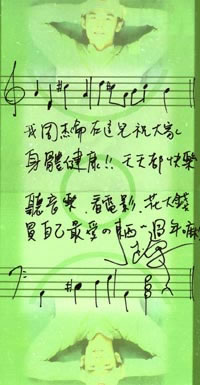 我周杰倫在這兒祝大家
身體健康!! 天天都快樂
聽音樂、看電影、花大錢
買自己最愛の車
週年